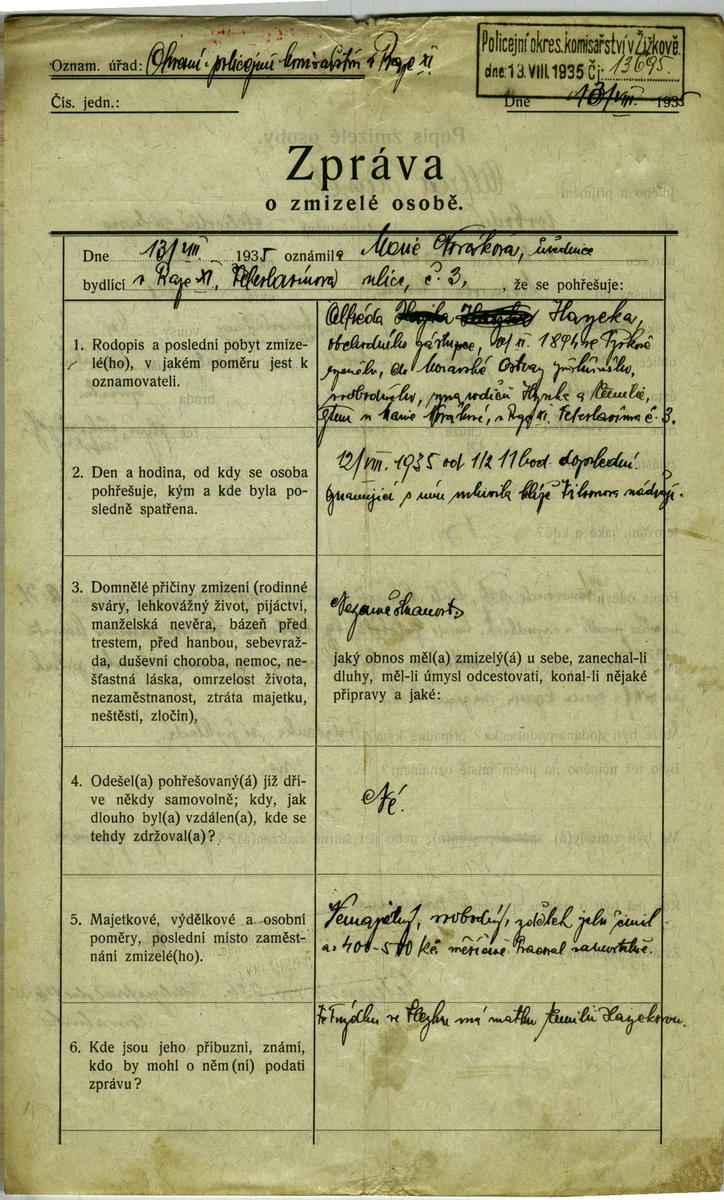 Policejní okres. komisařství v Žižkově.
dne: 13. VIII. 1935 Čj. 13695.
Oznam. úřad: policejní v Praze XI
Čís. jedn.:
Dne 13/VIII. 1935
Zpráva
o zmizelé osobě.
Dne 13/VIII. 1935 oznámil a Marie Nováková, úřednice
bydlící v Praze XI, Veleslavínova ulice, č. 3, , že se pohřešuje:
1. Rodopis a poslední pobyt zmize-
lé(ho), v jakém poměru jest k
oznamovateli.
Alfréda Hayeka,
obchodního zástupce, 1894 ve
do Moravské Ostravy příslušného,
svobodného, syna rodičů Hynka a Emilie,
u Marie Novákové, v Praze XI. Veleslavínova č. 3.
2. Den a hodina, od kdy se osoba
pohřešuje, kým a kde byla po-
sledně spatřena.
12/VIII. 1935 od 1/2 11 hod. dopolední.
s ním mluvila blíže Wilsonova nádraží.
3. Domnělé příčiny zmizení (rodinné
sváry, lehkovážný život, pijáctví,
manželská nevěra, bázeň před
trestem, před hanbou, sebevraž-
da, duševní choroba, nemoc, ne-
šťastná láska, omrzelost života,
nezaměstnanost, ztráta majetku,
neštěstí, zločin),
Nezaměstnanost,
jaký obnos měl(a) zmizelý(á) u sebe, zanechal-li
dluhy, měl-li úmysl odcestovati, konal-li nějaké
přípravy a jaké:
4. Odešel(a) pohřešovaný(á) již dří-
ve někdy samovolně; kdy, jak
dlouho byl(a) vzdálen(a), kde se
tehdy zdržoval(a)?
Né.
5. Majetkové, výdělkové a osobní
poměry, poslední místo zaměst-
nání zmizelé(ho).
Nemajetný, svobodný, výdělek jeho činil
as 400-500 Kč měsíčně. Pracoval samostatně.
6. Kde jsou jeho příbuzní, známí,
kdo by mohl o něm(ní) podati
zprávu?
Ve Frýdku ve Slezku má matku Emilii Hayekovou.